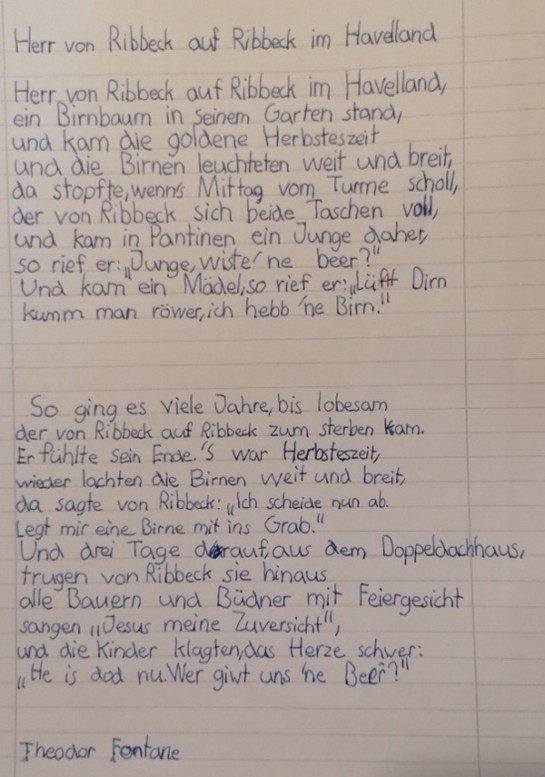 Herr von Ribbeck auf Ribbeck im Havelland
Herr von Ribbeck auf Ribbeck im Havelland,
ein Birnbaum in seinem Garten stand,
und kam die goldene Herbsteszeit
und die Birnen leuchteten weit und breit,
da stopfte, wenn's Mittag vom Turme scholl,
der von Ribbeck sich beide Taschen voll,
und kam in Pantinen ein Junge daher,
so rief er: „Junge, wiste 'ne beer?"
Und kam ein Mädel, so rief er: „Lütt Dirn
kumm man röwer, ich hebb 'ne Birn."
So ging es viele Jahre, bis lobesam
der von Ribbeck auf Ribbeck zum sterben kam.
Er fühlte sein Ende. 's war Herbsteszeit,
wieder lachten die Birnen weit und breit,
da sagte von Ribbeck: „Ich scheide nun ab.
Legt mir eine Birne mit ins Grab."
Und drei Tage darauf, aus dem Doppeldachhaus,
trugen von Ribbeck sie hinaus
alle Bauern und Büdner mit Feiergesicht
sangen „Jesus meine Zuversicht",
und die Kinder klagten, das Herze schwer:
„He is dod nu. Wer giwt uns 'ne Beer?"
Theodor Fontane